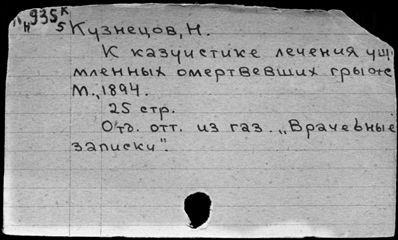 935 К
Н 5
Кузнецов, Н.
К казуистике лечения ущ
мленных омертвевших грыж
М., 1894.
25 стр.
Отд. отт. из газ. „Врачебные
записки".